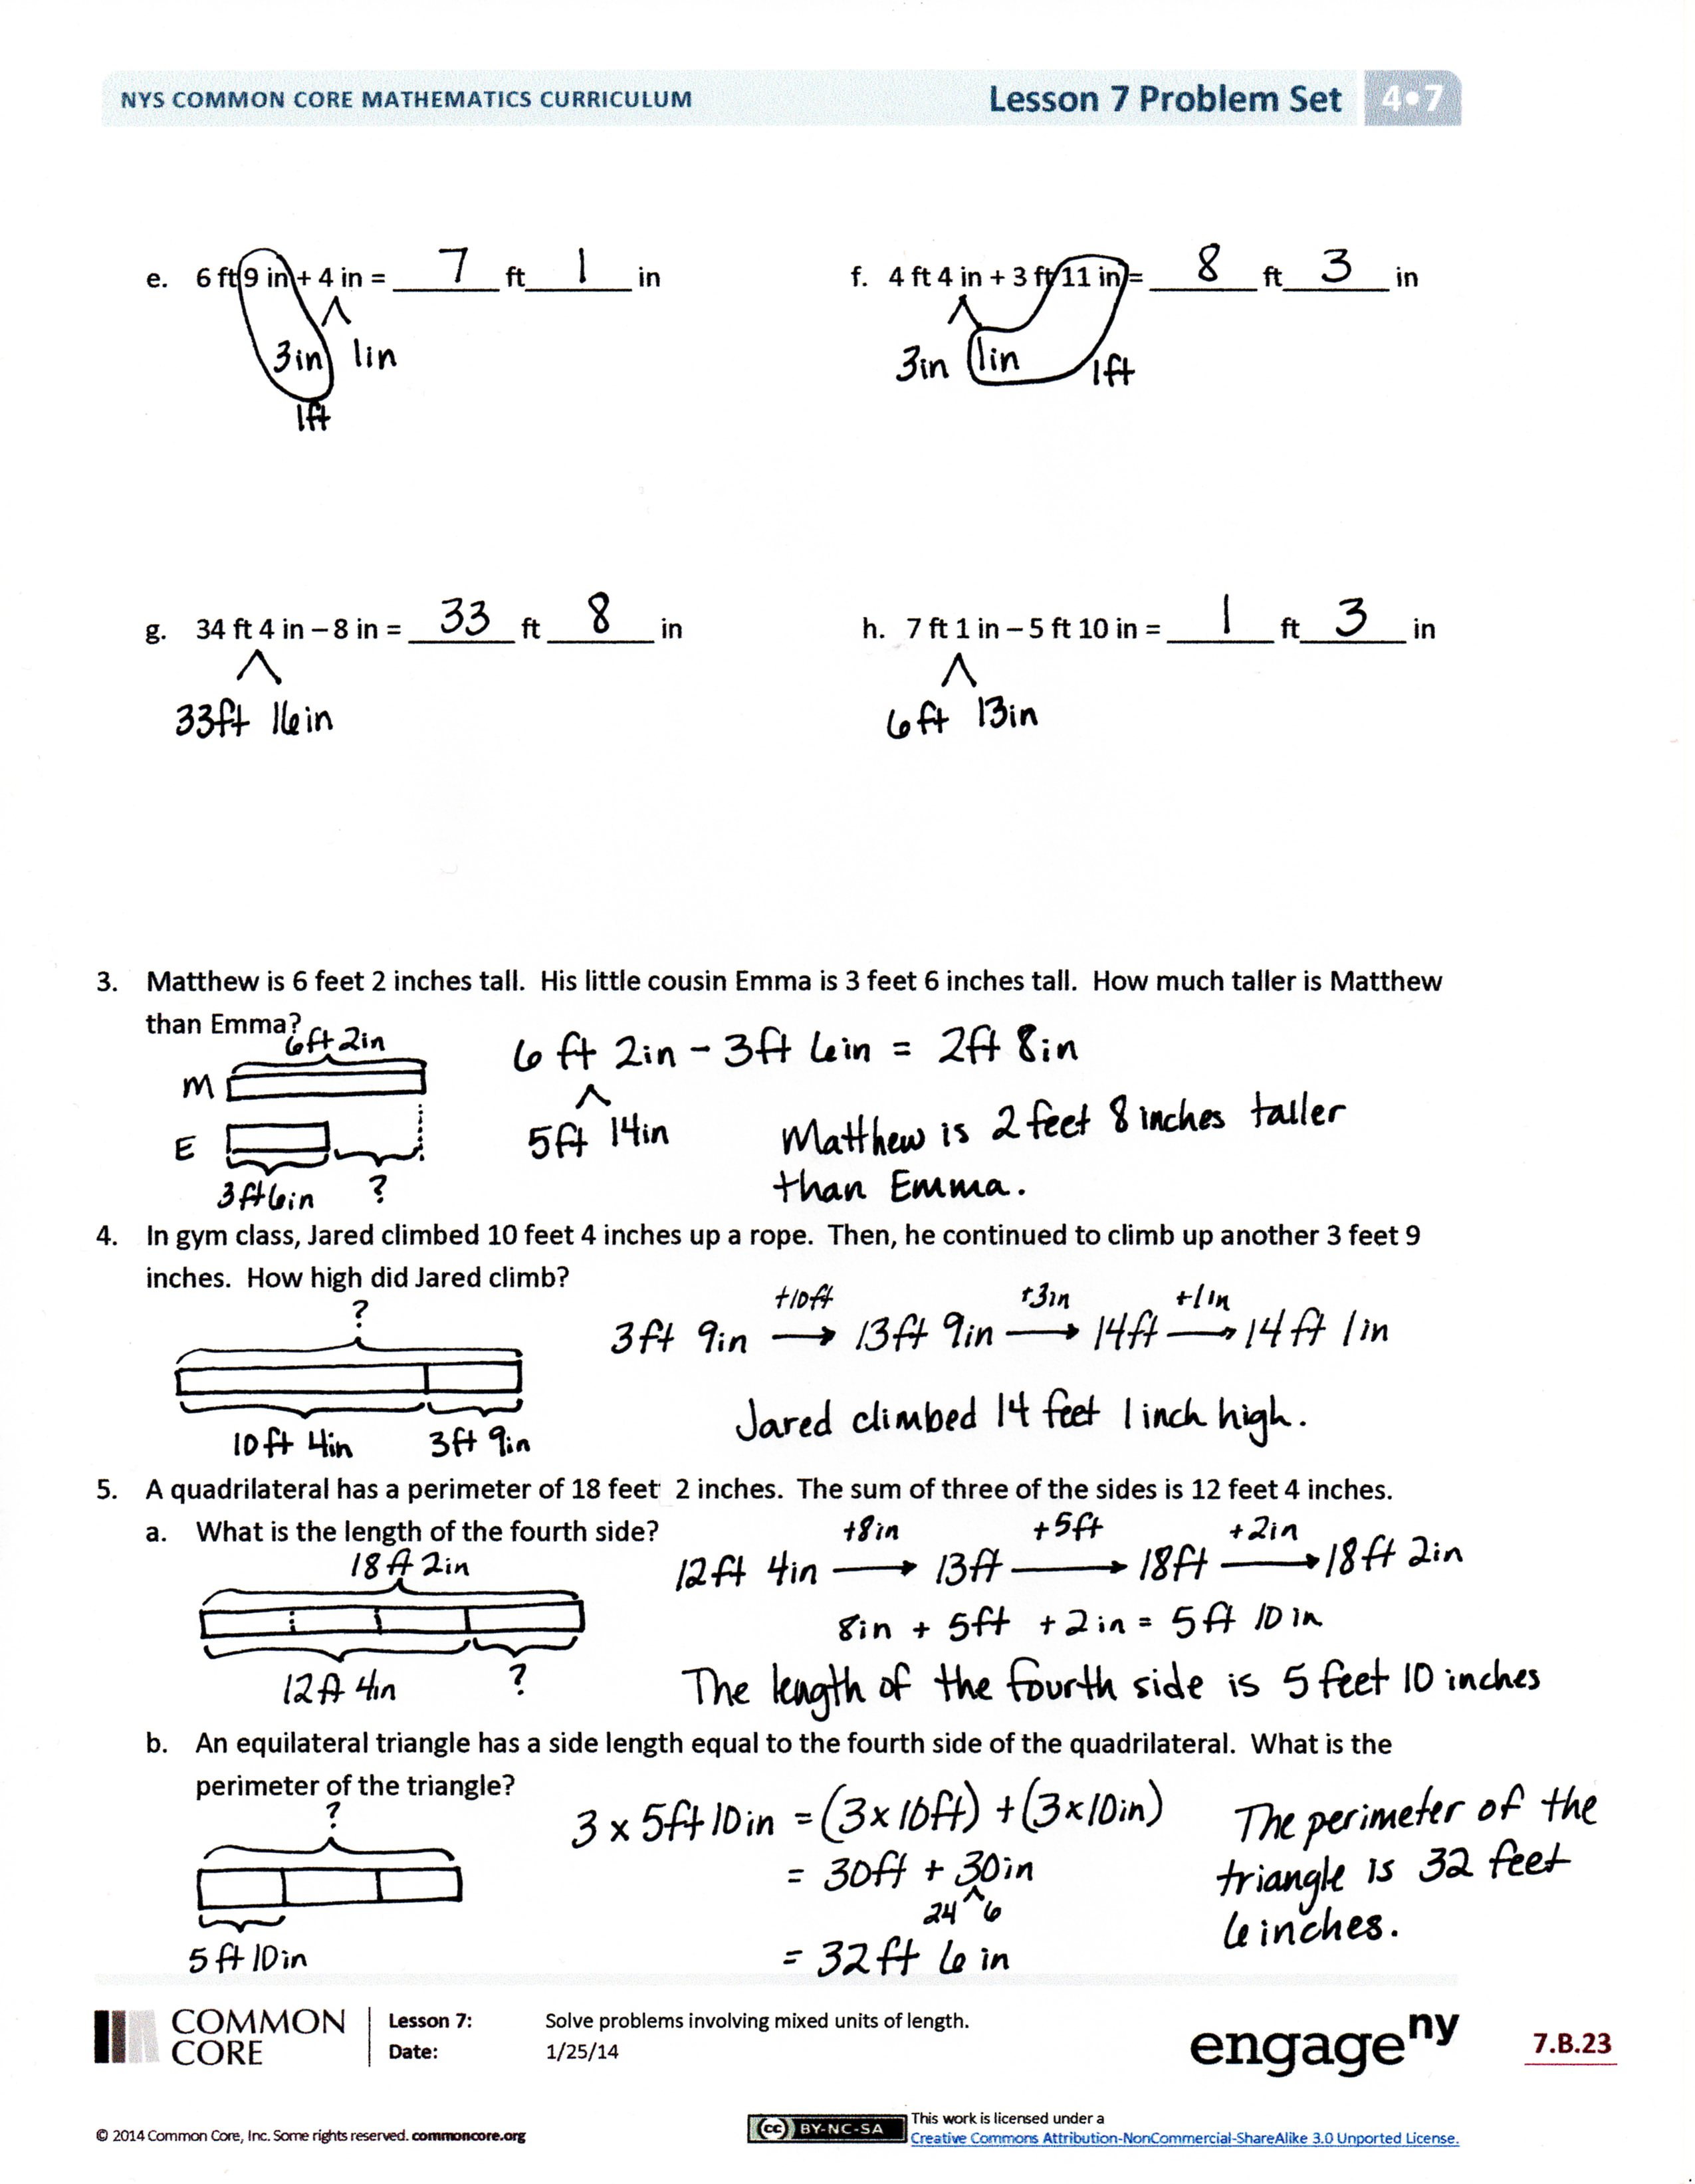 NYS COMMON CORE MATHEMATICS CURRICULUM Lesson 7 Problem Set 4•7
e. 6 ft 9 in + 4 in = 7 ft 1 in
3in 1in
1ft
f. 4 ft 4 in + 3 ft 11 in = 8 ft 3 in
3in 1in 1ft
g. 34 ft 4 in – 8 in = 33 ft 8 in
33ft 16in
h. 7 ft 1 in – 5 ft 10 in = 1 ft 3 in
6ft 13in
3. Matthew is 6 feet 2 inches tall. His little cousin Emma is 3 feet 6 inches tall. How much taller is Matthew
than Emma?
6ft 2in
M
E
3ft6in ?
6 ft 2in - 3ft 6in = 2ft 8in
5ft 14in
Matthew is 2 feet 8 inches taller
than Emma.
4. In gym class, Jared climbed 10 feet 4 inches up a rope. Then, he continued to climb up another 3 feet 9
inches. How high did Jared climb?
?
10ft 4in 3ft 9in
+10ft +3in +1in
3ft 9in → 13ft 9in → 14ft → 14ft 1in
Jared climbed 14 feet 1 inch high.
5. A quadrilateral has a perimeter of 18 feet 2 inches. The sum of three of the sides is 12 feet 4 inches.
a. What is the length of the fourth side?
18ft 2in
12ft 4in ?
+8in +5ft +2in
12ft 4in → 13ft → 18ft → 18ft 2in
8in + 5ft + 2in = 5ft 10in
The length of the fourth side is 5 feet 10 inches
b. An equilateral triangle has a side length equal to the fourth side of the quadrilateral. What is the
perimeter of the triangle?
?
5ft 10in
3 x 5ft 10in = (3 x 10ft) + (3 x 10in)
= 30ft + 30in
24 6
= 32ft 6 in
The perimeter of the
triangle is 32 feet
6 inches.
COMMON
CORE
Lesson 7: Solve problems involving mixed units of length.
Date: 1/25/14
engageny
7.B.23
© 2014 Common Core, Inc. Some rights reserved. commoncore.org
cc BY-NC-SA
This work is licensed under a
Creative Commons Attribution-NonCommercial-ShareAlike 3.0 Unported License.